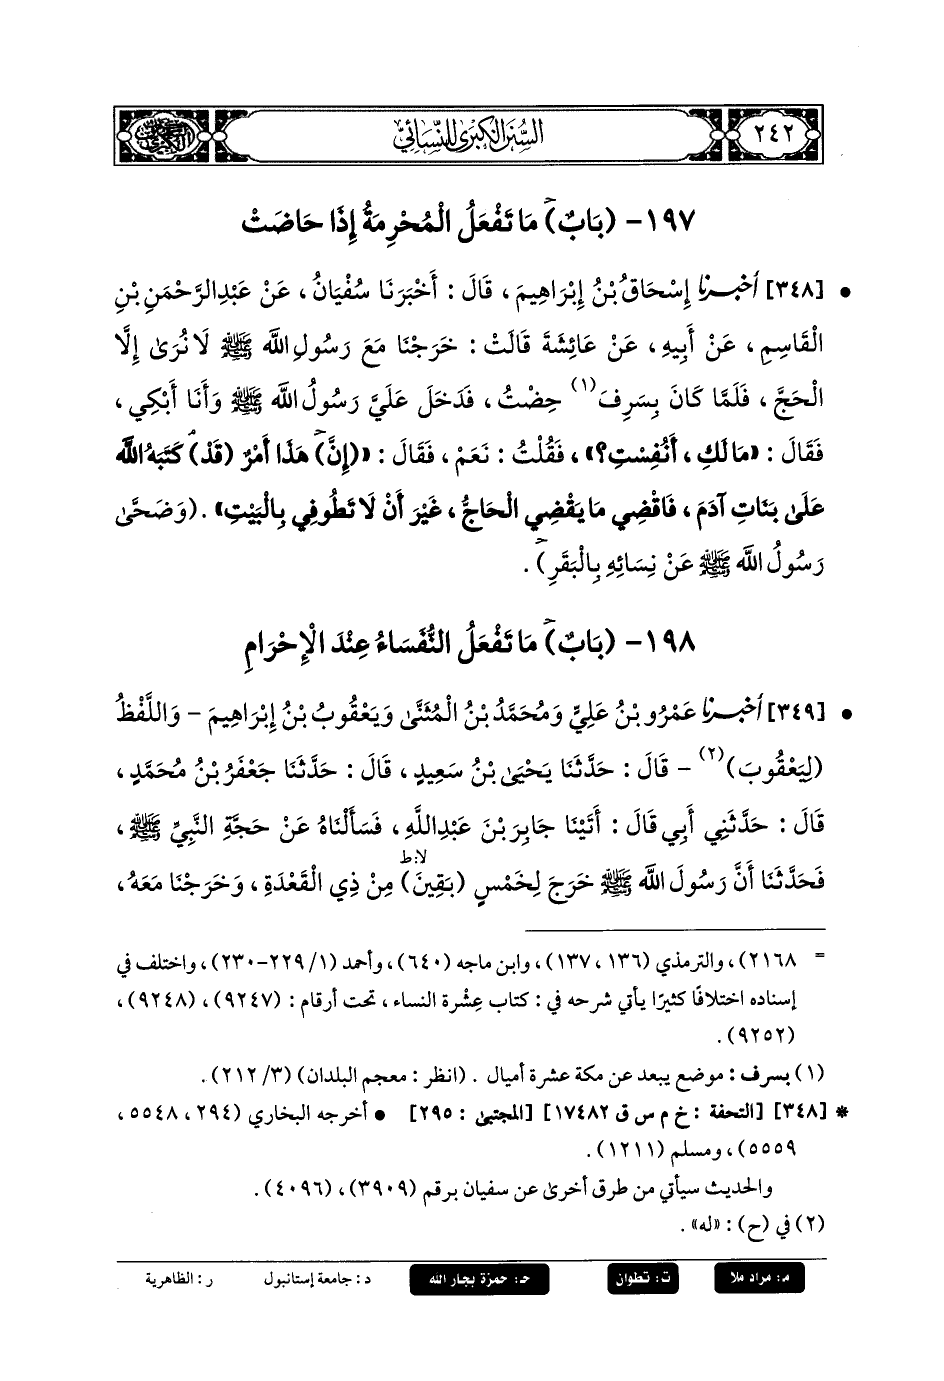 ٢٤٢
السُّنَنُ الكُبْرَى لِلنَّسَائِيّ
١٩٧- (بَابٌ) مَا تَفْعَلُ الْمُحْرِمَةُ إِذَا حَاضَتْ
• [٣٤٨] أَخْبَرَنَا إِسْحَاقُ بْنُ إِبْرَاهِيمَ، قَالَ: أَخْبَرَنَا سُفْيَانُ، عَنْ عَبْدِالرَّحْمَنِ بْنِ
الْقَاسِمِ، عَنْ أَبِيهِ، عَنْ عَائِشَةَ قَالَتْ: خَرَجْنَا مَعَ رَسُولِ اللَّه ﷺ لَا نُرَىٰ إِلَّا
الْحَجَّ، فَلَمَّا كَانَ بِسَرِفَ(١) حِضْتُ، فَدَخَلَ عَلَيَّ رَسُولُ اللَّه ﷺ وَأَنَا أَبْكِي،
فَقَالَ: «مَا لَكِ، أَنُفِسْتِ؟»، فَقُلْتُ: نَعَمْ، فَقَالَ: «(إِنَّ) هَذَا أَمْرٌ (قَدْ) كَتَبَهُ اللَّه
عَلَىٰ بَنَاتِ آدَمَ، فَاقْضِي مَا يَقْضِي الْحَاجُّ، غَيْرَ أَنْ لَا تَطُوفِي بِالْبَيْتِ». (وَضَحَّىٰ
رَسُولُ اللَّه ﷺ عَنْ نِسَائِهِ بِالْبَقَرِ).
١٩٨- (بَابٌ) مَا تَفْعَلُ النُّفَسَاءُ عِنْدَ الْإِحْرَامِ
• [٣٤٩] أَخْبَرَنَا عَمْرُو بْنُ عَلِيٍّ وَمُحَمَّدُ بْنُ الْمُثَنَّىٰ وَيَعْقُوبُ بْنُ إِبْرَاهِيمَ - وَاللَّفْظُ
(لِيَعْقُوبَ)(٢) - قَالَ: حَدَّثَنَا يَحْيَىٰ بْنُ سَعِيدٍ، قَالَ: حَدَّثَنَا جَعْفَرُ بْنُ مُحَمَّدٍ،
قَالَ: حَدَّثَنِي أَبِي قَالَ: أَتَيْنَا جَابِرَ بْنَ عَبْدِاللَّهِ، فَسَأَلْنَاهُ عَنْ حَجَّةِ النَّبِيِّ ﷺ،
لا: ط
فَحَدَّثَنَا أَنَّ رَسُولَ اللَّه ﷺ خَرَجَ لِخَمْسٍ (بَقِينَ) مِنْ ذِي الْقَعْدَةِ، وَخَرَجْنَا مَعَهُ،
= ٢١٦٨)، والترمذي (١٣٦، ١٣٧)، وابن ماجه (٦٤٠)، وأحمد (١/ ٢٢٩-٢٣٠)، واختلف في
إسناده اختلافًا كثيرًا يأتي شرحه في: كتاب عِشْرة النساء، تحت أرقام: (٩٢٤٧)، (٩٢٤٨)،
(٩٢٥٢).
(١) بسرف: موضع يبعد عن مكة عشرة أميال. (انظر: معجم البلدان) (٣/ ٢١٢).
* [٣٤٨] [التحفة: خ م س ق ١٧٤٨٢] [المجتبى: ٢٩٥] • أخرجه البخاري (٢٩٤، ٥٥٤٨،
٥٥٥٩)، ومسلم (١٢١١).
والحديث سيأتي من طرق أخرى عن سفيان برقم (٣٩٠٩)، (٤٠٩٦).
(٢) في (ح): «له».
م: مراد ملا ت: تطوان حـ: حمزة بجار الله د: جامعة إستانبول ر: الظاهرية